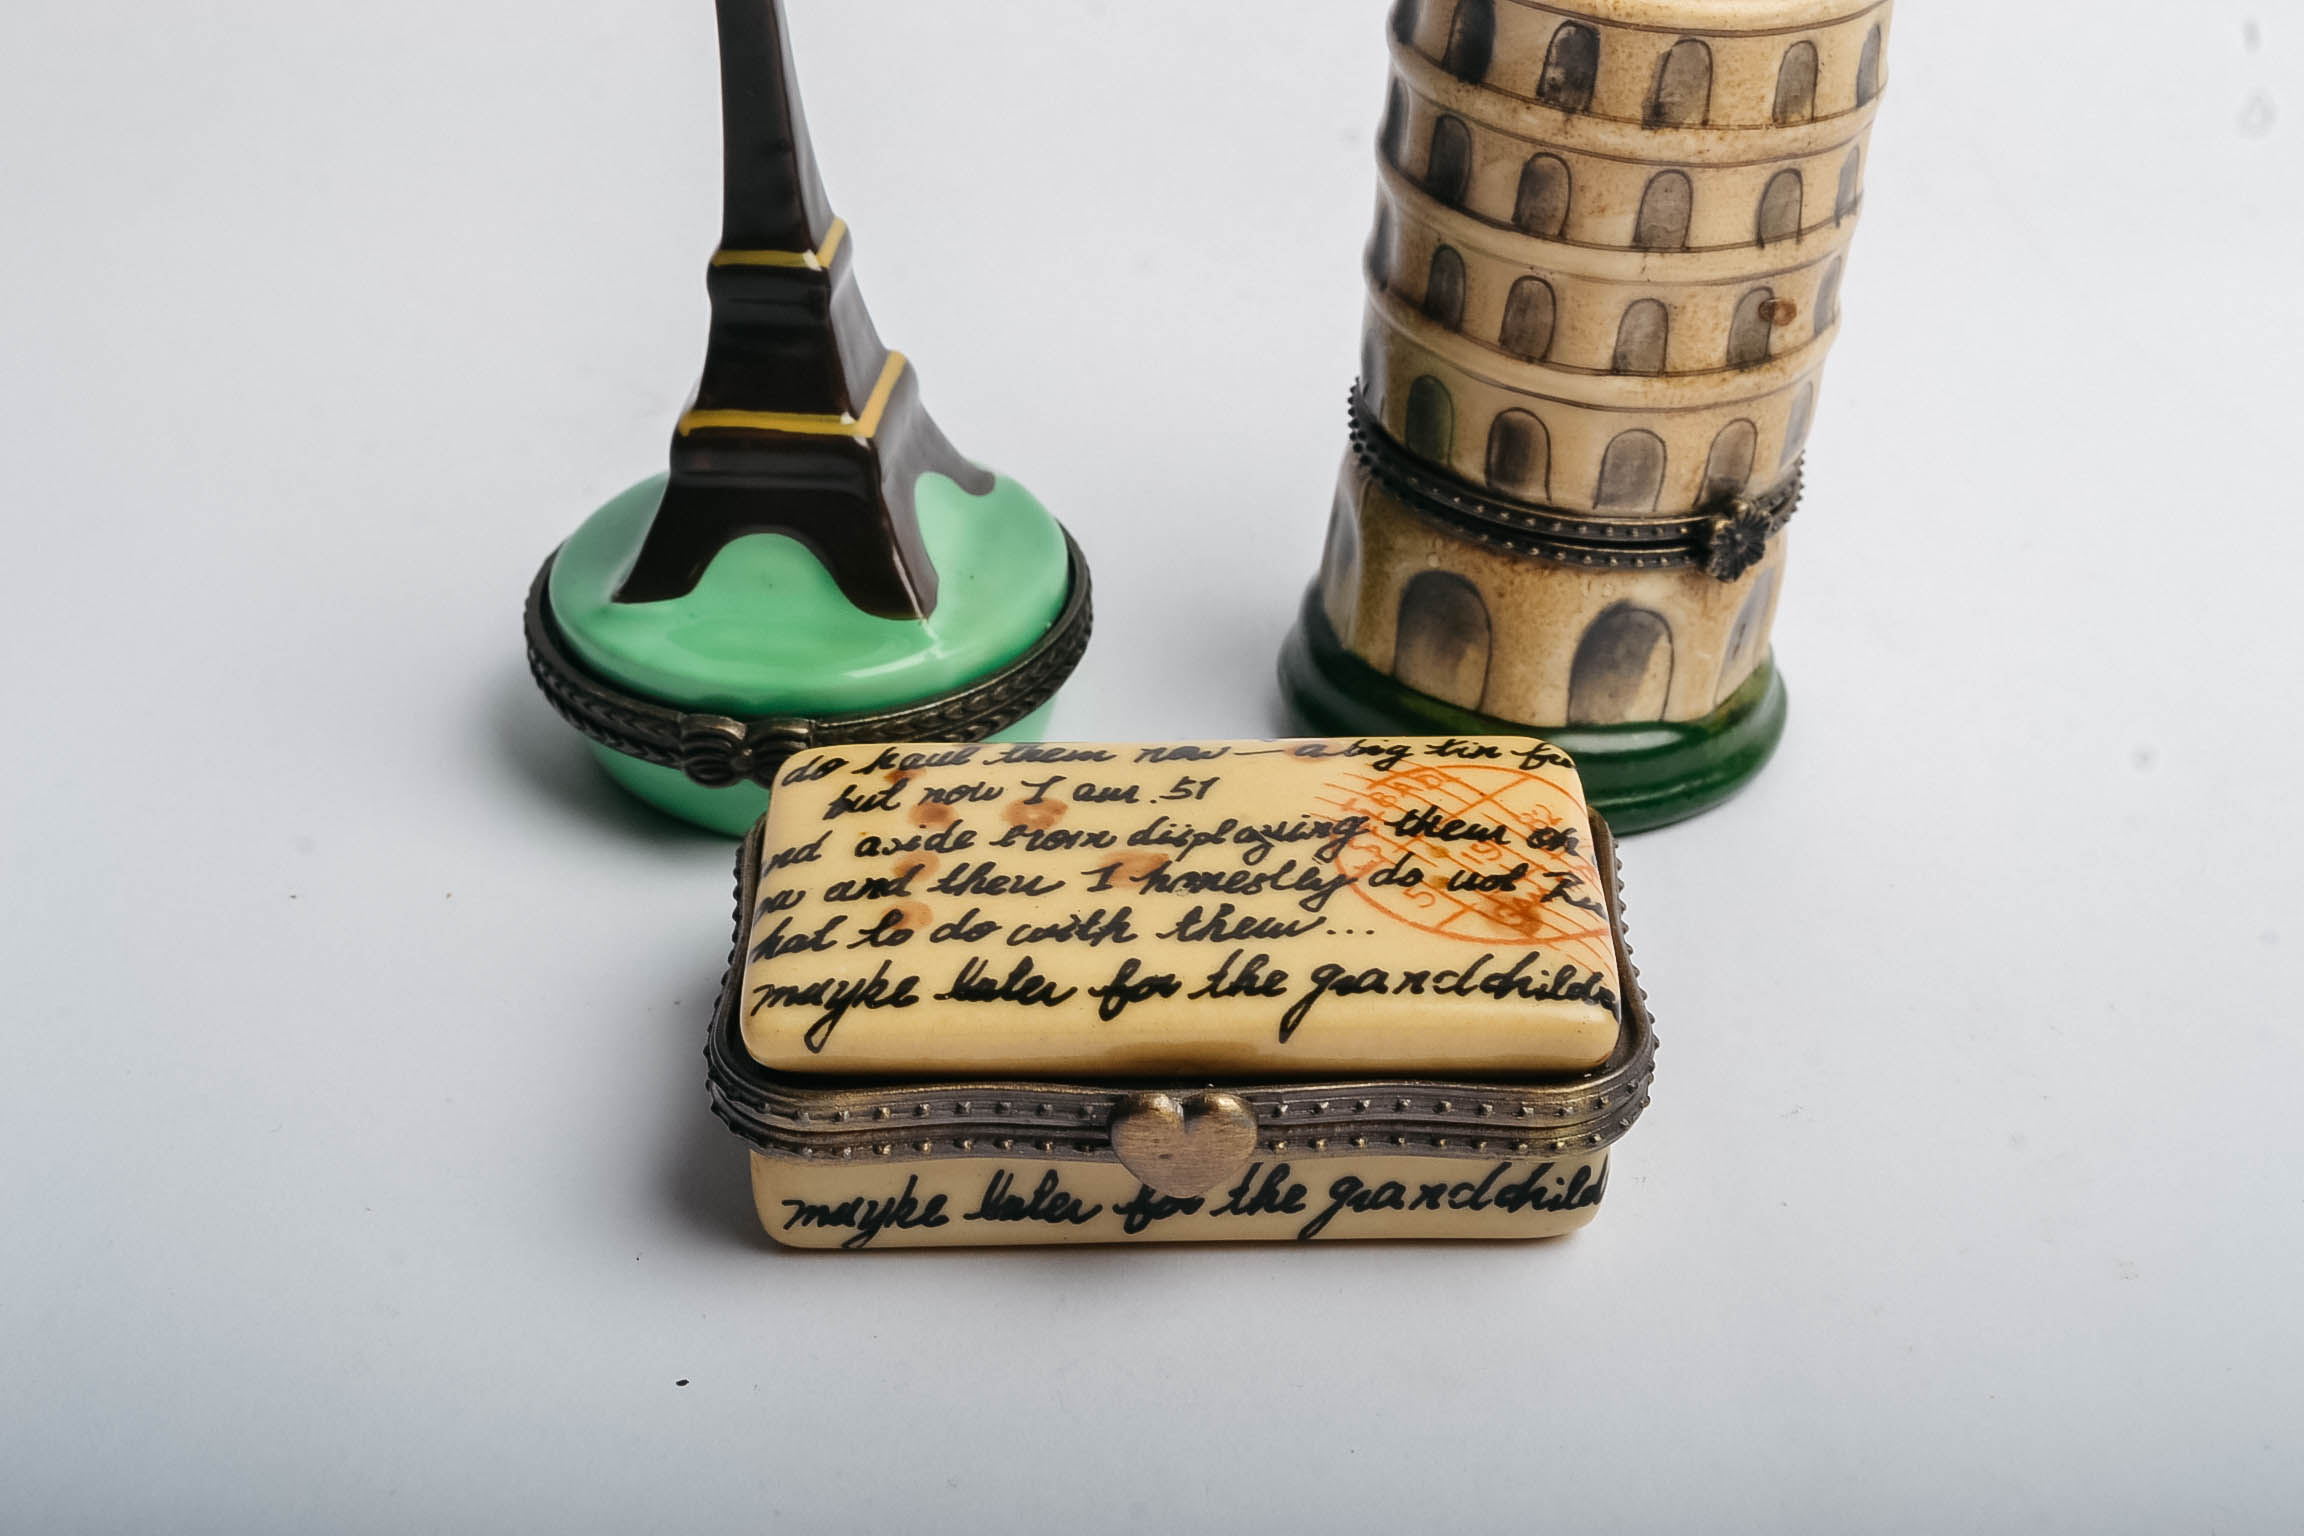 do have them now — a big tin fu
but now I am. 57
nd aside from displaying them on
and then I honestly do not
hat to do with them...
mayke later for the grandchildre
mayke later for the grandchild